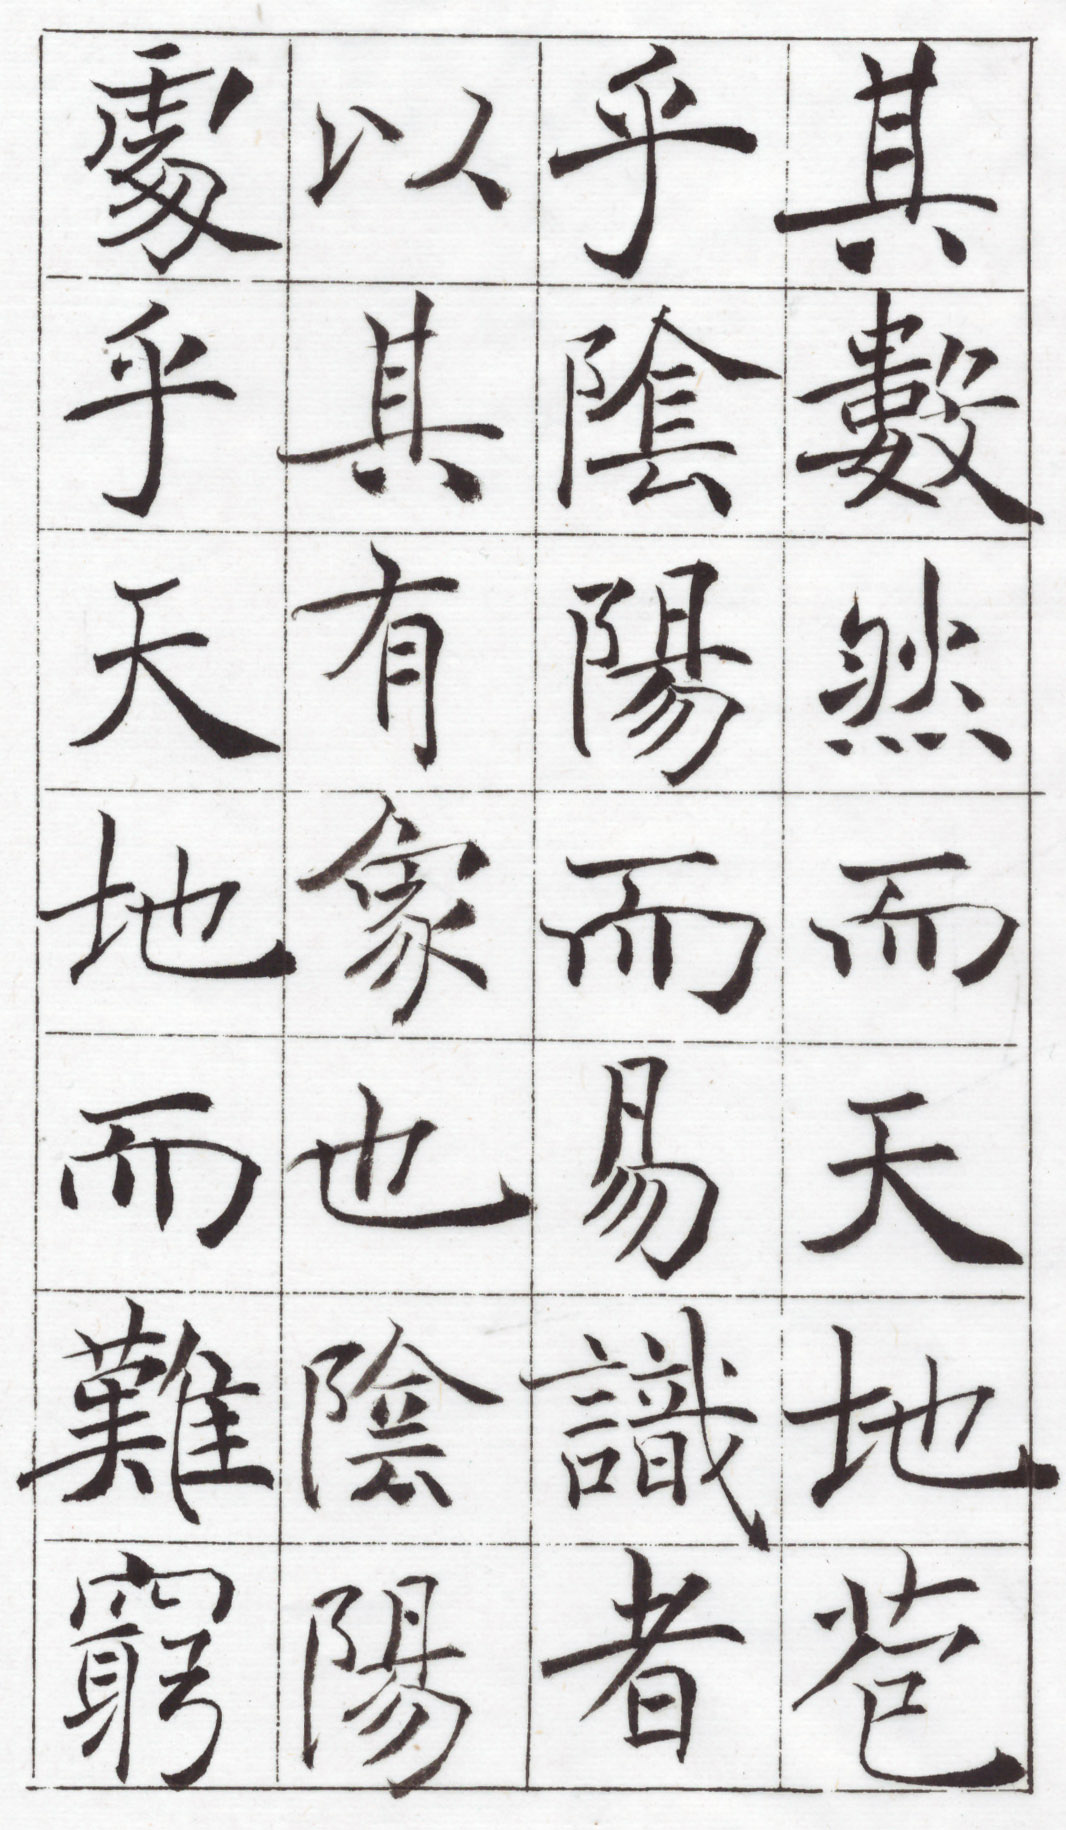 其數然而天地苞
乎陰陽而易識者
以其有象也陰陽
處乎天地而難窮